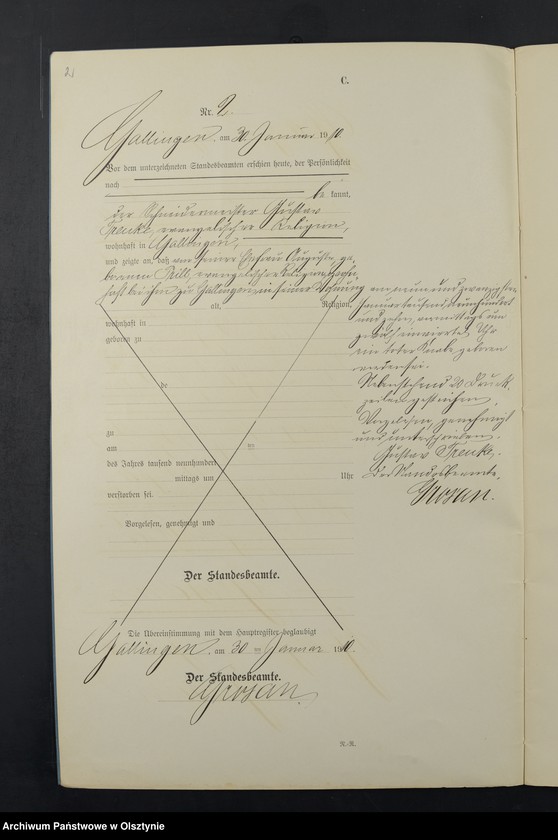 2)
C.
Nr. 2.
Gallingen, am 30. Januar 1910
Vor dem unterzeichneten Standesbeamten erschien heute, der Persönlichkeit
nach
be kannt,
der Schneidermeister Gustav
evangelischer Religion,
wohnhaft in Gallingen,
und zeigte an, daß von seiner Ehefrau Auguste, ge-
borenen evangelischer Religion, wohn-
haft bei ihm zu Gallingen in seiner Wohnung
am neunundzwanzigsten
alt, Religion,
Januar tausend neunhundert
wohnhaft in
und zehn, vormittags um
geboren zu
Uhr
ein toter Knabe geboren
worden sei.
de
Nebenstehend 20 Druck-
zeilen gestrichen.
zu
Vorgelesen, genehmigt
am =
und unterschrieben.
Gustav
des Jahres tausend neunhundert
Der Standesbeamte.
mittags um Uhr
Grosan.
verstorben sei.
Vorgelesen, genehmigt und
Der Standesbeamte.
Die Übereinstimmung mit dem Hauptregister beglaubigt
Gallingen, am 30 ten Januar 1910.
Der Standesbeamte.
Grosan.
N.-R.
Archiwum Państwowe w Olsztynie